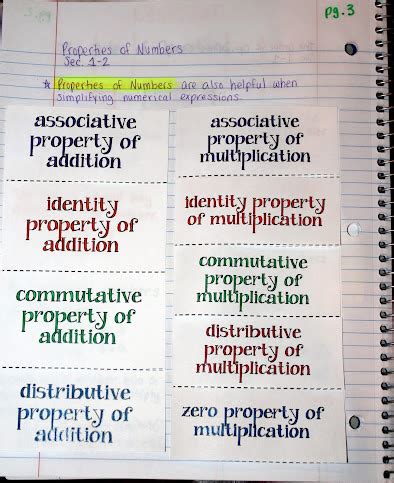 pg. 3
Properties of Numbers
Sec. 1-2
★ Properties of Numbers are also helpful when
simplifying numerical expressions.
associative
property of
addition
identity
property of
addition
commutative
property of
addition
distributive
property of
addition
associative
property of
multiplication
identity property
of multiplication
commutative
property of
multiplication
distributive
property of
multiplication
zero property of
multiplication